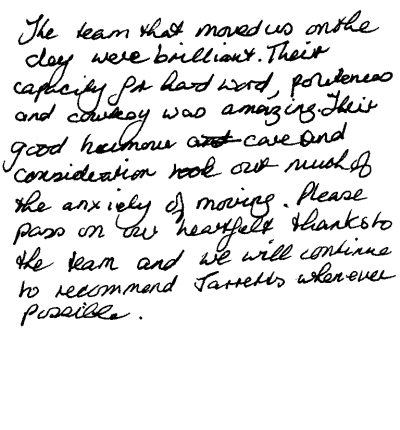 The team that moved us on the
day were brilliant. Their
capacity for hard word, politeness
and courtesy was amazing. Their
good humour and care and
consideration took out much of
the anxiety of moving. Please
pass on our heartfelt thanks to
the team and we will continue
to recommend Jarretts whenever
possible.